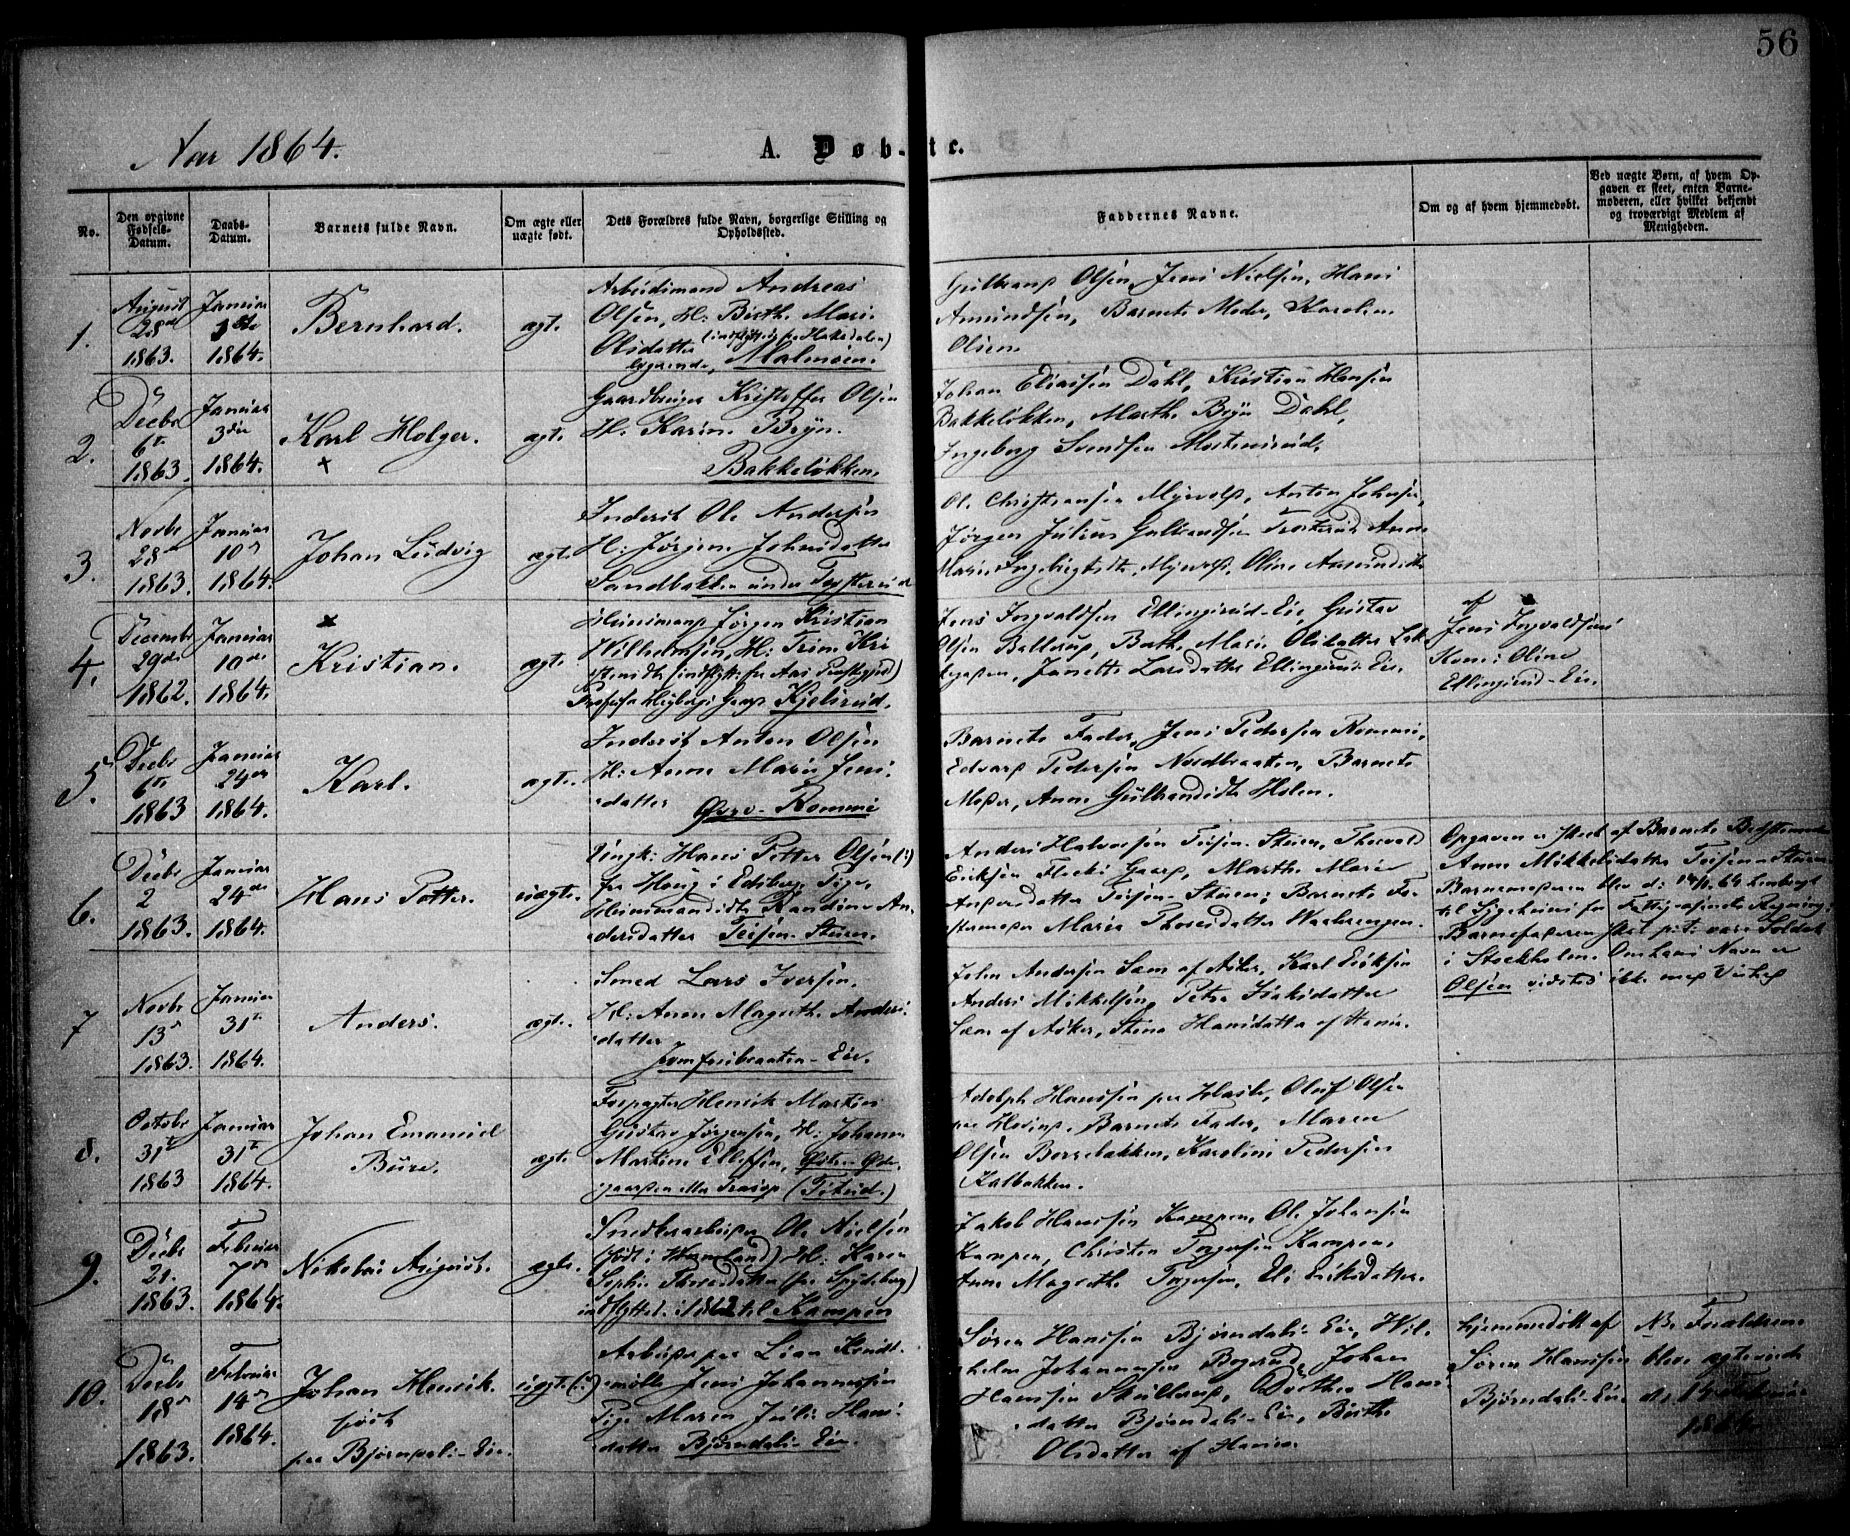 56
Aar 1864.
A. Døb-te.
No.
Den opgivne Fødsels-Datum.
Daabs-Datum.
Barnets fulde Navn.
Om ægte eller uægte født.
Dets Forældres fulde Navn, borgerlige Stilling og Opholdssted.
Faddernes Navne.
Om og af hvem hjemmedøbt.
Ved uægte Børn, af hvem Opgaven er skeet, enten Barnemoderen, eller hvilket bekjendt og troværdigt Medlem af Menigheden.
1.
August 28de 1863.
Januar 1864.
Bernhard.
ægte.
Arbeidsmand Andreas
Olsen, H: Birth. Mari.
Olsdatter (indflyttet fra Hakedalen)
logerende, Malmøen.
Gulbrand Olsen, Jens Nielsen, Hans
Amundsen, Barnets Moder, Karolin
Olsen.
2.
Decbr 6te 1863.
Januar 3die 1864.
Karl Holger.
ægte.
Gaardbruger Kristoffer Olsen
H. Karin. Bryn.
Bakkeløkken.
Johan Eliassen Dahl, Kristian Hansen
Bakkeløkken, Marthe Bryn Dahl,
Ingeborg Svendsen Mortensrud.
3.
Novbr 28 1863.
Januar 10 1864.
Johan Ludvig
ægte.
Inderst Ole Andersen
H: Jørgine Johnsdatter
Sandbakken under
Ole Christiansen Myrvold, Anton Johnsen,
Jørgen Julius Gulbrandsen
Marie Ingebrigtsdtr. Myrvold, Oline Amundsdtr
4.
December 29de 1862.
Januar 10de 1864.
Kristian.
ægte.
Huusmand Jørgen Kristian
Wilhelmsen, H: Trine
(indflytt. fra Aas Præstegjeld)
Kjelsrud.
Jens Ingvaldsen Ellingsrud-Eie, Gustav
Olsen Ballerup, Marie Olsdatter
Janette Larsdatter Ellingsrud-Eie.
af Jens Ingvaldsens
Kone: Oline
Ellingsrud-Eie.
5.
Decbr 6te 1863
Januar 24de 1864.
Karl.
ægte.
Inderst Anton Olsen
H: Anne Marie Jens-
datter Øvre-Rommen
Barnets Fader, Jens Pedersen Rommen,
Edvard Pedersen Nordbraaten, Barnets
Moder, Anne Gulbrandsdtr Holen.
6.
Decbr 2 1863.
Januar 24de 1864.
Hans Petter.
uægte.
Ungk: Hans Petter Olsen (:)
fra Houg i Edsberg, Pige,
Huusmandsdtr Randine An-
dersdatter Teisen-Stuen.
Anders Halvorsen Teisen-Stuen, Thorvald
Eriksen Flecki Gaard, Marthe Marie
Andersdatter Teisen-Stuen; Barnets
Maria Thoresdatter Waalerengen.
Opgaven er skeet af Barnets Bedstemoder
Anne Mikkelsdatter Teisen-Stuen
Barnemoderen blev d: 14/1 64 henbragt
til Sygehuset for
Barnefaderen skal pt: være Soldat
i Stockholm. Om hans Navn er
Olsen vidstes ikke med Vished
7
Novbr 13 1863.
Januar 31te 1864.
Anders.
ægte.
Smed Lars Iversen,
H: Anne Magrethe Anders-
datter
Jomfrubraaten-Eie.
John Andersen Sæm af Asker, Karl Eriksen
Anders Mikkelsen, Petra Isaksdatter
Sæm af Asker, Stine Hansdatter af
8.
October 31te 1863
Januar 31te 1864.
Johan Emanuel
Bure.
ægte.
Forpagter Henrik Martin
Gustav Jørgensen, H: Johanne
Martine Ellefsen,
Adolph Hanssen paa Hasle, Oluf Olsen
paa Hovind, Barnets Fader, Maren
Olsen Borrebakken, Karoline Pedersen
Kalbakken.
9.
Decbr 21. 1863.
Februar 7de 1864.
Nikolai August.
ægte.
Snedkerarbeider Ole Nielsen
(født i Wermland) H: Karen
Sophie Thoresdatter (fra Spydeberg)
indflyttet i 1862 til Kampen
Jakob Hanssen Kampen, Ole Johansen
Kampen, Christen Torgersen Kampen,
Anne Magrethe Torgersen, Eli Eriksdatter.
10.
Decbr 18 1863.
Februar 14 1864.
Johan Henrik.
født
paa Bjørndals-Eie.
uægte (:)
Arbeider paa Lian
mølle Jens Johannessen
Pige Maren Julie Hans-
datter Bjørndals-Eie.
Søren Hanssen Bjørndals-Eie, Wil-
helm Johannessen Bogerud, Johan
Hanssen Skullerud, Dorthea Hans-
datter Bjørndals-Eie, Birthe
Olsdatter af
hjemmedøbt af
Søren Hanssen
Bjørndals-Eie
NB. Forældrene
bleve ægteviede
d. 14 Februar
1864.